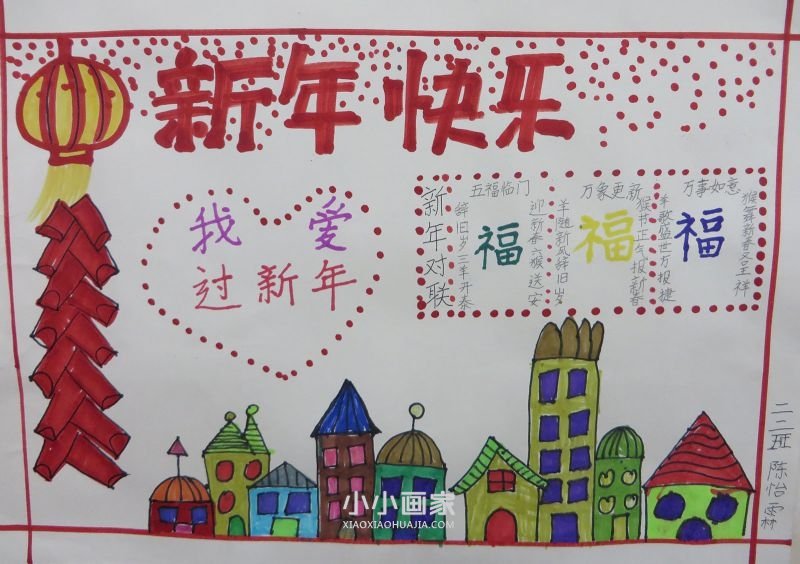 新年快乐
我爱
过新年
新年对联
五福临门
辞旧岁三羊开泰
福
迎新春六猴送安
万象更新
羊随新风辞旧岁
福
猴节正气报新春
万事如意
羊歌盛世方报捷
福
猴舞新春
二二班 陈怡霖
小小画家
XIAOXIAOHUAJIA.COM